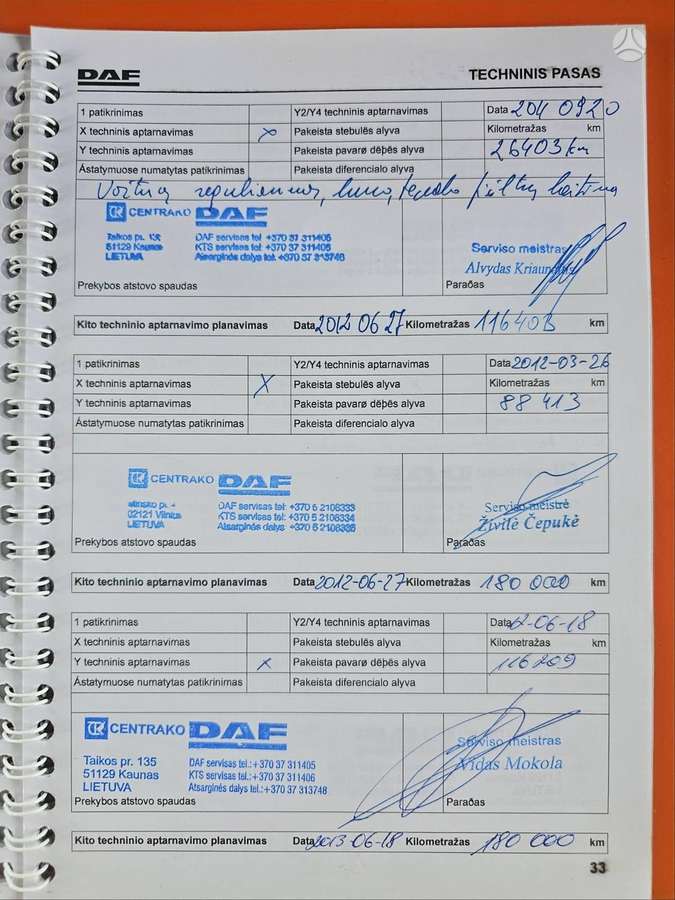 DAF TECHNINIS PASAS
1 patikrinimas Y2/Y4 techninis aptarnavimas Data
X techninis aptarnavimas X Pakeista stebulės alyva Kilometražas km
Y techninis aptarnavimas Pakeista pavarø dëþës alyva 26403 km
Ástatymuose numatytas patikrinimas Pakeista diferencialo alyva
CENTRAKO DAF
Taikos pr. DAF servisas tel +370 37 311405 Serviso meistras
51129 Kaunas KTS servisas tel +370 37 311406 Alvydas
LIETUVA Atsarginės dalys tel. +370 37 313748
Prekybos atstovo spaudas Paraðas
Kito techninio aptarnavimo planavimas Data 2012 06 27 Kilometražas 116403 km
1 patikrinimas Y2/Y4 techninis aptarnavimas Data 2012-03-26
X techninis aptarnavimas X Pakeista stebulės alyva Kilometražas km
Y techninis aptarnavimas Pakeista pavarø dëþës alyva 88 413
Ástatymuose numatytas patikrinimas Pakeista diferencialo alyva
CENTRAKO DAF
DAF servisas tel: +370 5 2106333 Serviso meistrė
02121 Vilnius KTS servisas tel: +370 5 2106334 Živilė Čepukė
LIETUVA Atsarginės dalys +370 5 2106335
Prekybos atstovo spaudas Paraðas
Kito techninio aptarnavimo planavimas Data 2012-06-27 Kilometražas 180 000 km
1 patikrinimas Y2/Y4 techninis aptarnavimas Data 12-06-18
X techninis aptarnavimas Pakeista stebulės alyva Kilometražas km
Y techninis aptarnavimas X Pakeista pavarø dëþës alyva 116209
Ástatymuose numatytas patikrinimas Pakeista diferencialo alyva
CENTRAKO DAF
Taikos pr. 135 DAF servisas tel.:+370 37 311405 Serviso meistras
51129 Kaunas KTS servisas tel.:+370 37 311406 Vidas Mokola
LIETUVA Atsarginės dalys tel.:+370 37 313748
Prekybos atstovo spaudas Paraðas
Kito techninio aptarnavimo planavimas Data 2013-06-18 Kilometražas 180 000 km
33